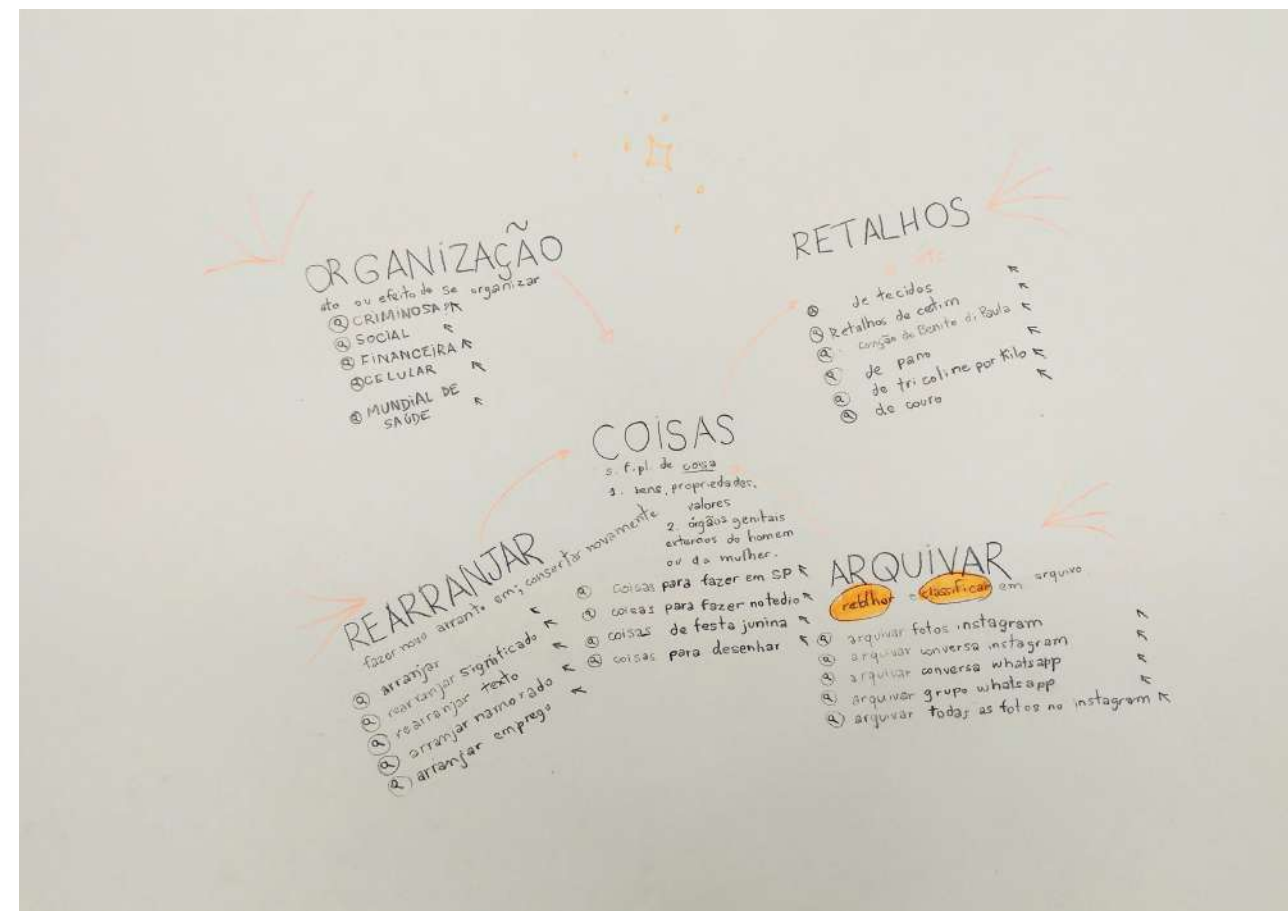 ORGANIZAÇÃO
ato ou efeito de se organizar
CRIMINOSA
SOCIAL
FINANCEIRA
CELULAR
MUNDIAL DE
SAÚDE
RETALHOS
de tecidos
Retalhos de cetim
canção de Benito di Paula
de pano
de tricoline por Kilo
de couro
COISAS
s. f. pl. de coisa
1. bens, propriedades,
valores
2. órgãos genitais
externos do homem
ou da mulher.
coisas para fazer em SP
coisas para fazer no tedio
coisas de festa junina
coisas para desenhar
REARRANJAR
fazer novo arranjo em; consertar novamente
arranjar
rearranjar significado
rearranjar texto
arranjar namorado
arranjar emprego
ARQUIVAR
e classificar em arquivo
arquivar fotos instagram
arquivar conversa instagram
arquivar conversa whatsapp
arquivar grupo whatsapp
arquivar todas as fotos no instagram